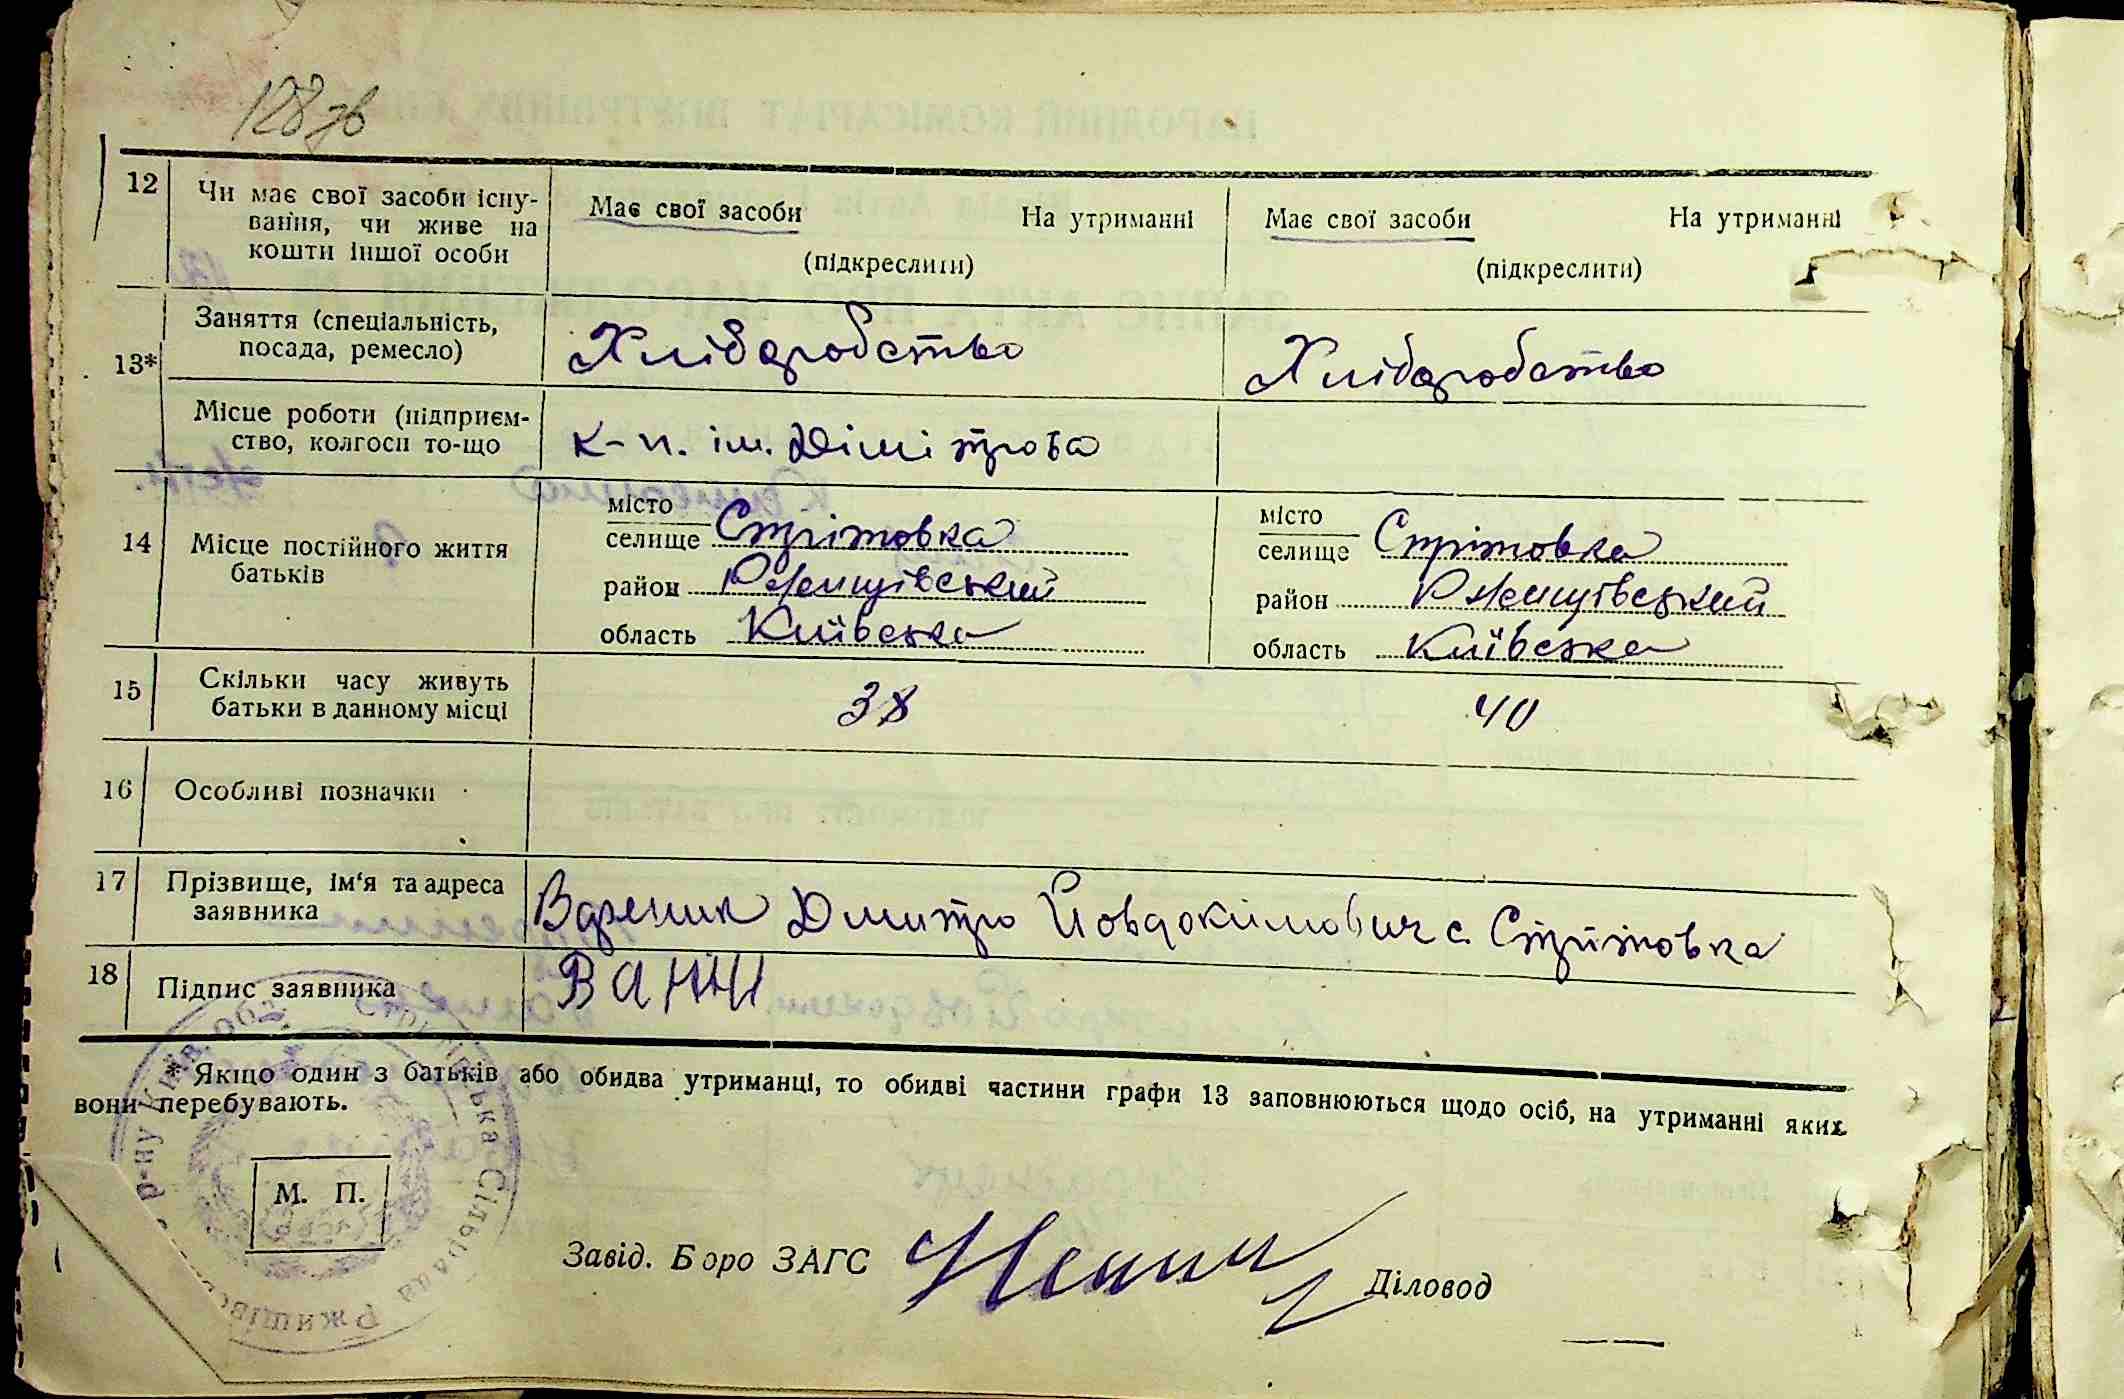 128 зв
12 Чи має свої засоби існу- Має свої засоби На утриманні Має свої засоби На утриманні
вання, чи живе на
кошти іншої особи (підкреслити) (підкреслити)
13* Заняття (спеціальність, Хлібаробство Хлібаробство
посада, ремесло)
Місце роботи (підприєм- к-п. ім. Дімітрова
ство, колгосп то-що
14 Місце постійного життя батьків
місто
селище Стрітовка
район Ржищівський
область Київська
місто
селище Стрітовка
район Ржищівський
область Київська
15 Скільки часу живуть 38 40
батьки в данному місці
16 Особливі позначки
17 Прізвище, ім'я та адреса Вареник Дмитро Йовдокімович с. Стрітовка
заявника
18 Підпис заявника
* Якщо один з батьків або обидва утриманці, то обидві частини графи 13 заповнюються щодо осіб, на утриманні яких
вони перебувають.
М. П.
Завід. Бюро ЗАГС Діловод
Сільрада Ржищівс р-ну Київ. обл.